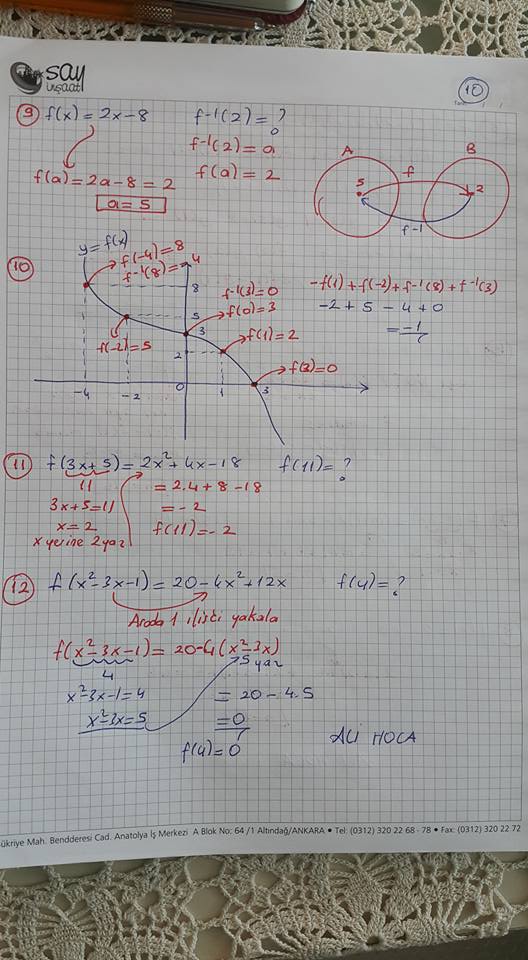 say
inşaat
10
9 f(x) = 2x-8 f-1(2) = ?
f-1(2) = a
f(a) = 2a-8 = 2 f(a) = 2
a = 5
A B
f
5 2
f-1
10 y = f(x)
f(-4) = 8
f-1(8) = -4
8
f-1(3) = 0
f(0) = 3
5
f(-2) = 5
3
f(1) = 2
2
f(3) = 0
-4 -2 0 1 3
-f(1) + f(-2) + f-1(8) + f-1(3)
-2 + 5 - 4 + 0
= -1
11 f(3x+5) = 2x²+4x-18 f(11) = ?
11 = 2.4+8-18
3x+5=11 = -2
x=2 f(11) = -2
x yerine 2 yaz
12 f(x²-3x-1) = 20-4x²+12x f(4) = ?
Arada 1 ilişki yakala
f(x²-3x-1) = 20-4(x²-3x)
4 5 yaz
x²-3x-1=4 = 20-4.5
x²-3x=5 = 0
f(4) = 0
ALİ HOCA
ükriye Mah. Bendderesi Cad. Anatolya İş Merkezi A Blok No: 64 /1 Altındağ/ANKARA • Tel: (0312) 320 22 68 - 78 • Fax: (0312) 320 22 72